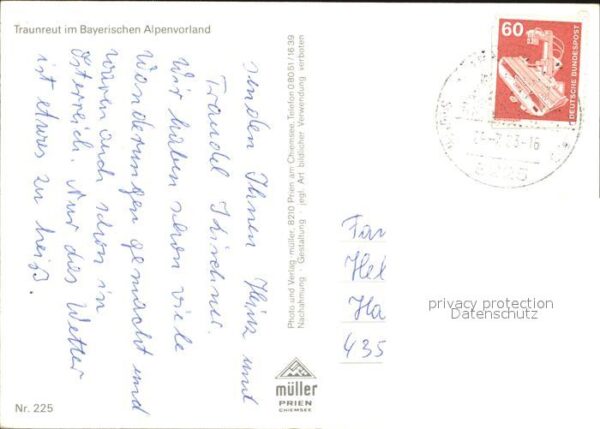 Traunreut im Bayerischen Alpenvorland
senden Ihnen Heinz und
Traudel Kirchner.
Wir haben schon viele
Wanderungen gemacht und
waren auch schon in
Österreich. Nur das Wetter
ist etwas zu heiß.
Nr. 225
Photo und Verlag müller, 8210 Prien am Chiemsee, Telefon 08051/1639
Nachahmung · Gestaltung · jegl. Art bildlicher Verwendung verboten
müller
PRIEN
CHIEMSEE
60
DEUTSCHE BUNDESPOST
8225
Fam
Hel
Ha
435
privacy protection
Datenschutz